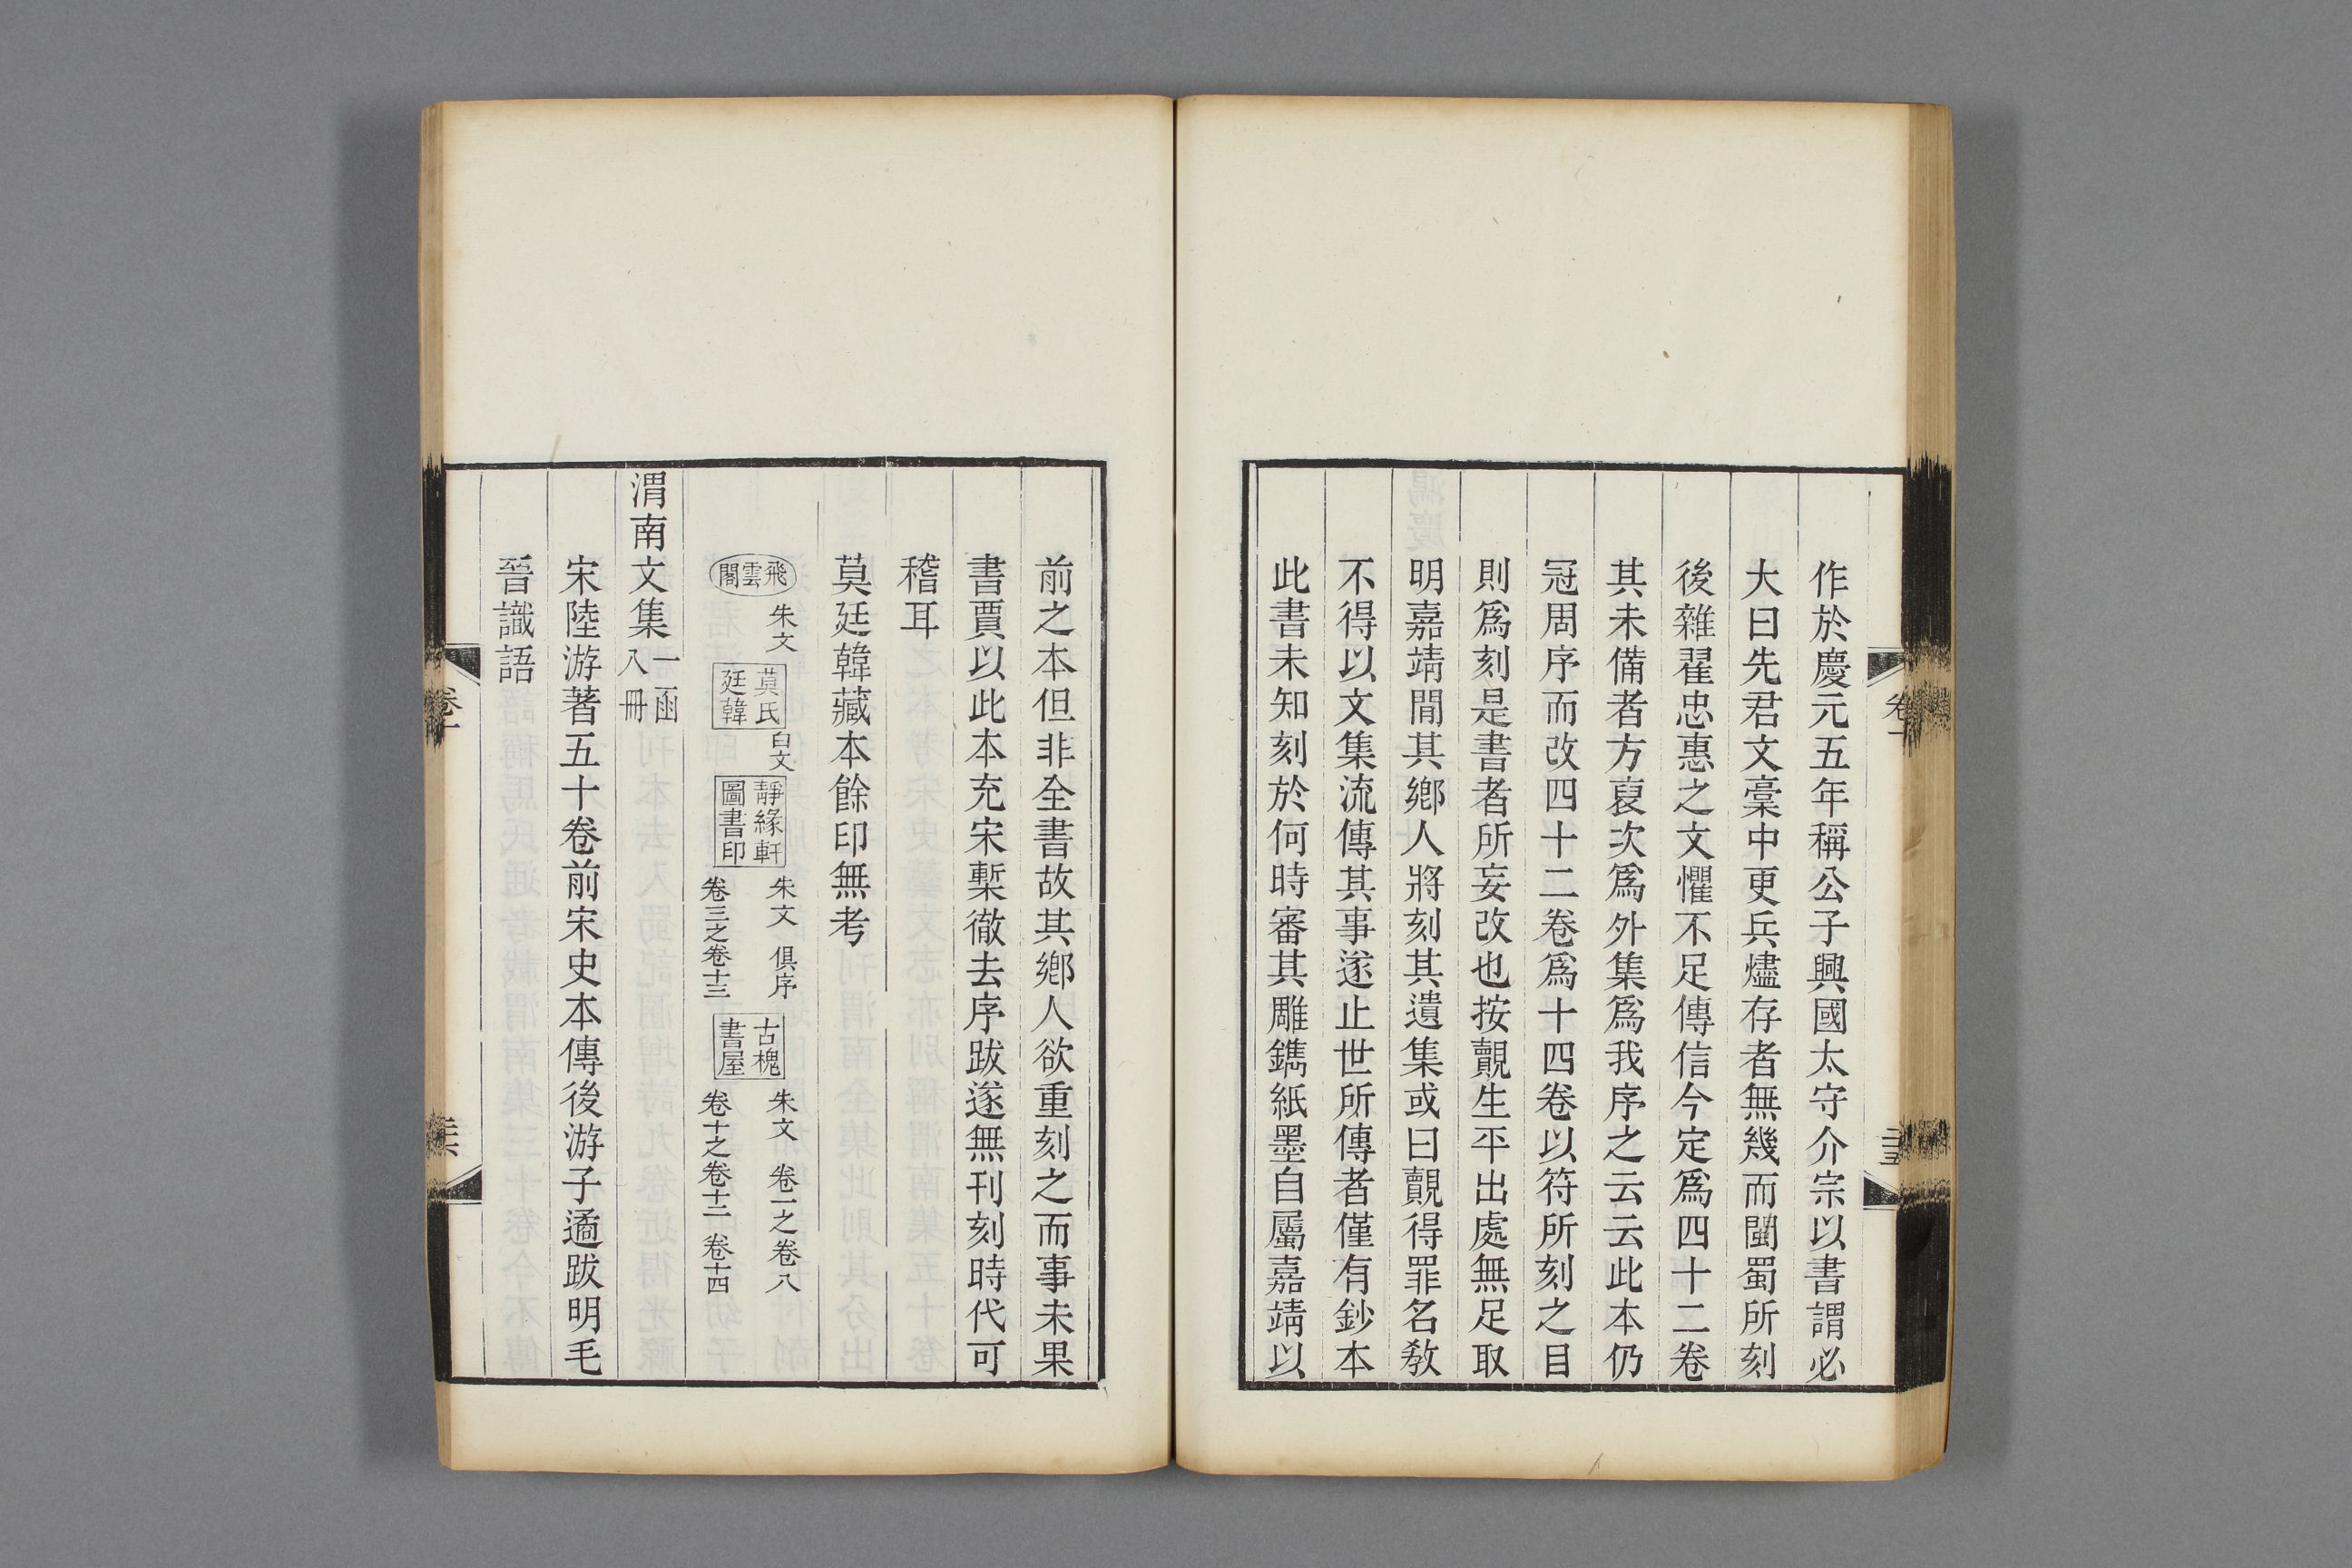 作於慶元五年稱公子興國太守介宗以書謂必
大曰先君文稾中更兵燼存者無幾而閩蜀所刻
後雜翟忠惠之文懼不足傳信今定爲四十二卷
其未備者方裒次爲外集爲我序之云云此本仍
冠周序而改四十二卷爲十四卷以符所刻之目
則爲刻是書者所妄改也按覿生平出處無足取
明嘉靖閒其鄉人將刻其遺集或曰覿得罪名敎
不得以文集流傳其事遂止世所傳者僅有鈔本
此書未知刻於何時審其雕鐫紙墨自屬嘉靖以
前之本但非全書故其鄉人欲重刻之而事未果
書賈以此本充宋槧徹去序跋遂無刊刻時代可
稽耳
莫廷韓藏本餘印無考
飛雲閣 朱文 莫氏廷韓 白文 靜緣軒圖書印 朱文 俱序 卷三之卷十三 古槐書屋 朱文 卷一之卷八 卷十之卷十二 卷十四
渭南文集 一函 八冊
宋陸游著五十卷前宋史本傳後游子遹跋明毛
晉識語